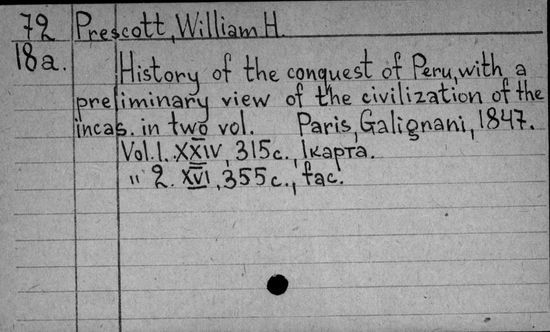 72 Prescott, William H.
18a.
History of the conquest of Peru, with a
preliminary view of the civilization of the
incas. in two vol. Paris, Galignani, 1847.
Vol. 1. XXIV, 315 c., 1 карта.
" 2. XVI, 355 c., fac.